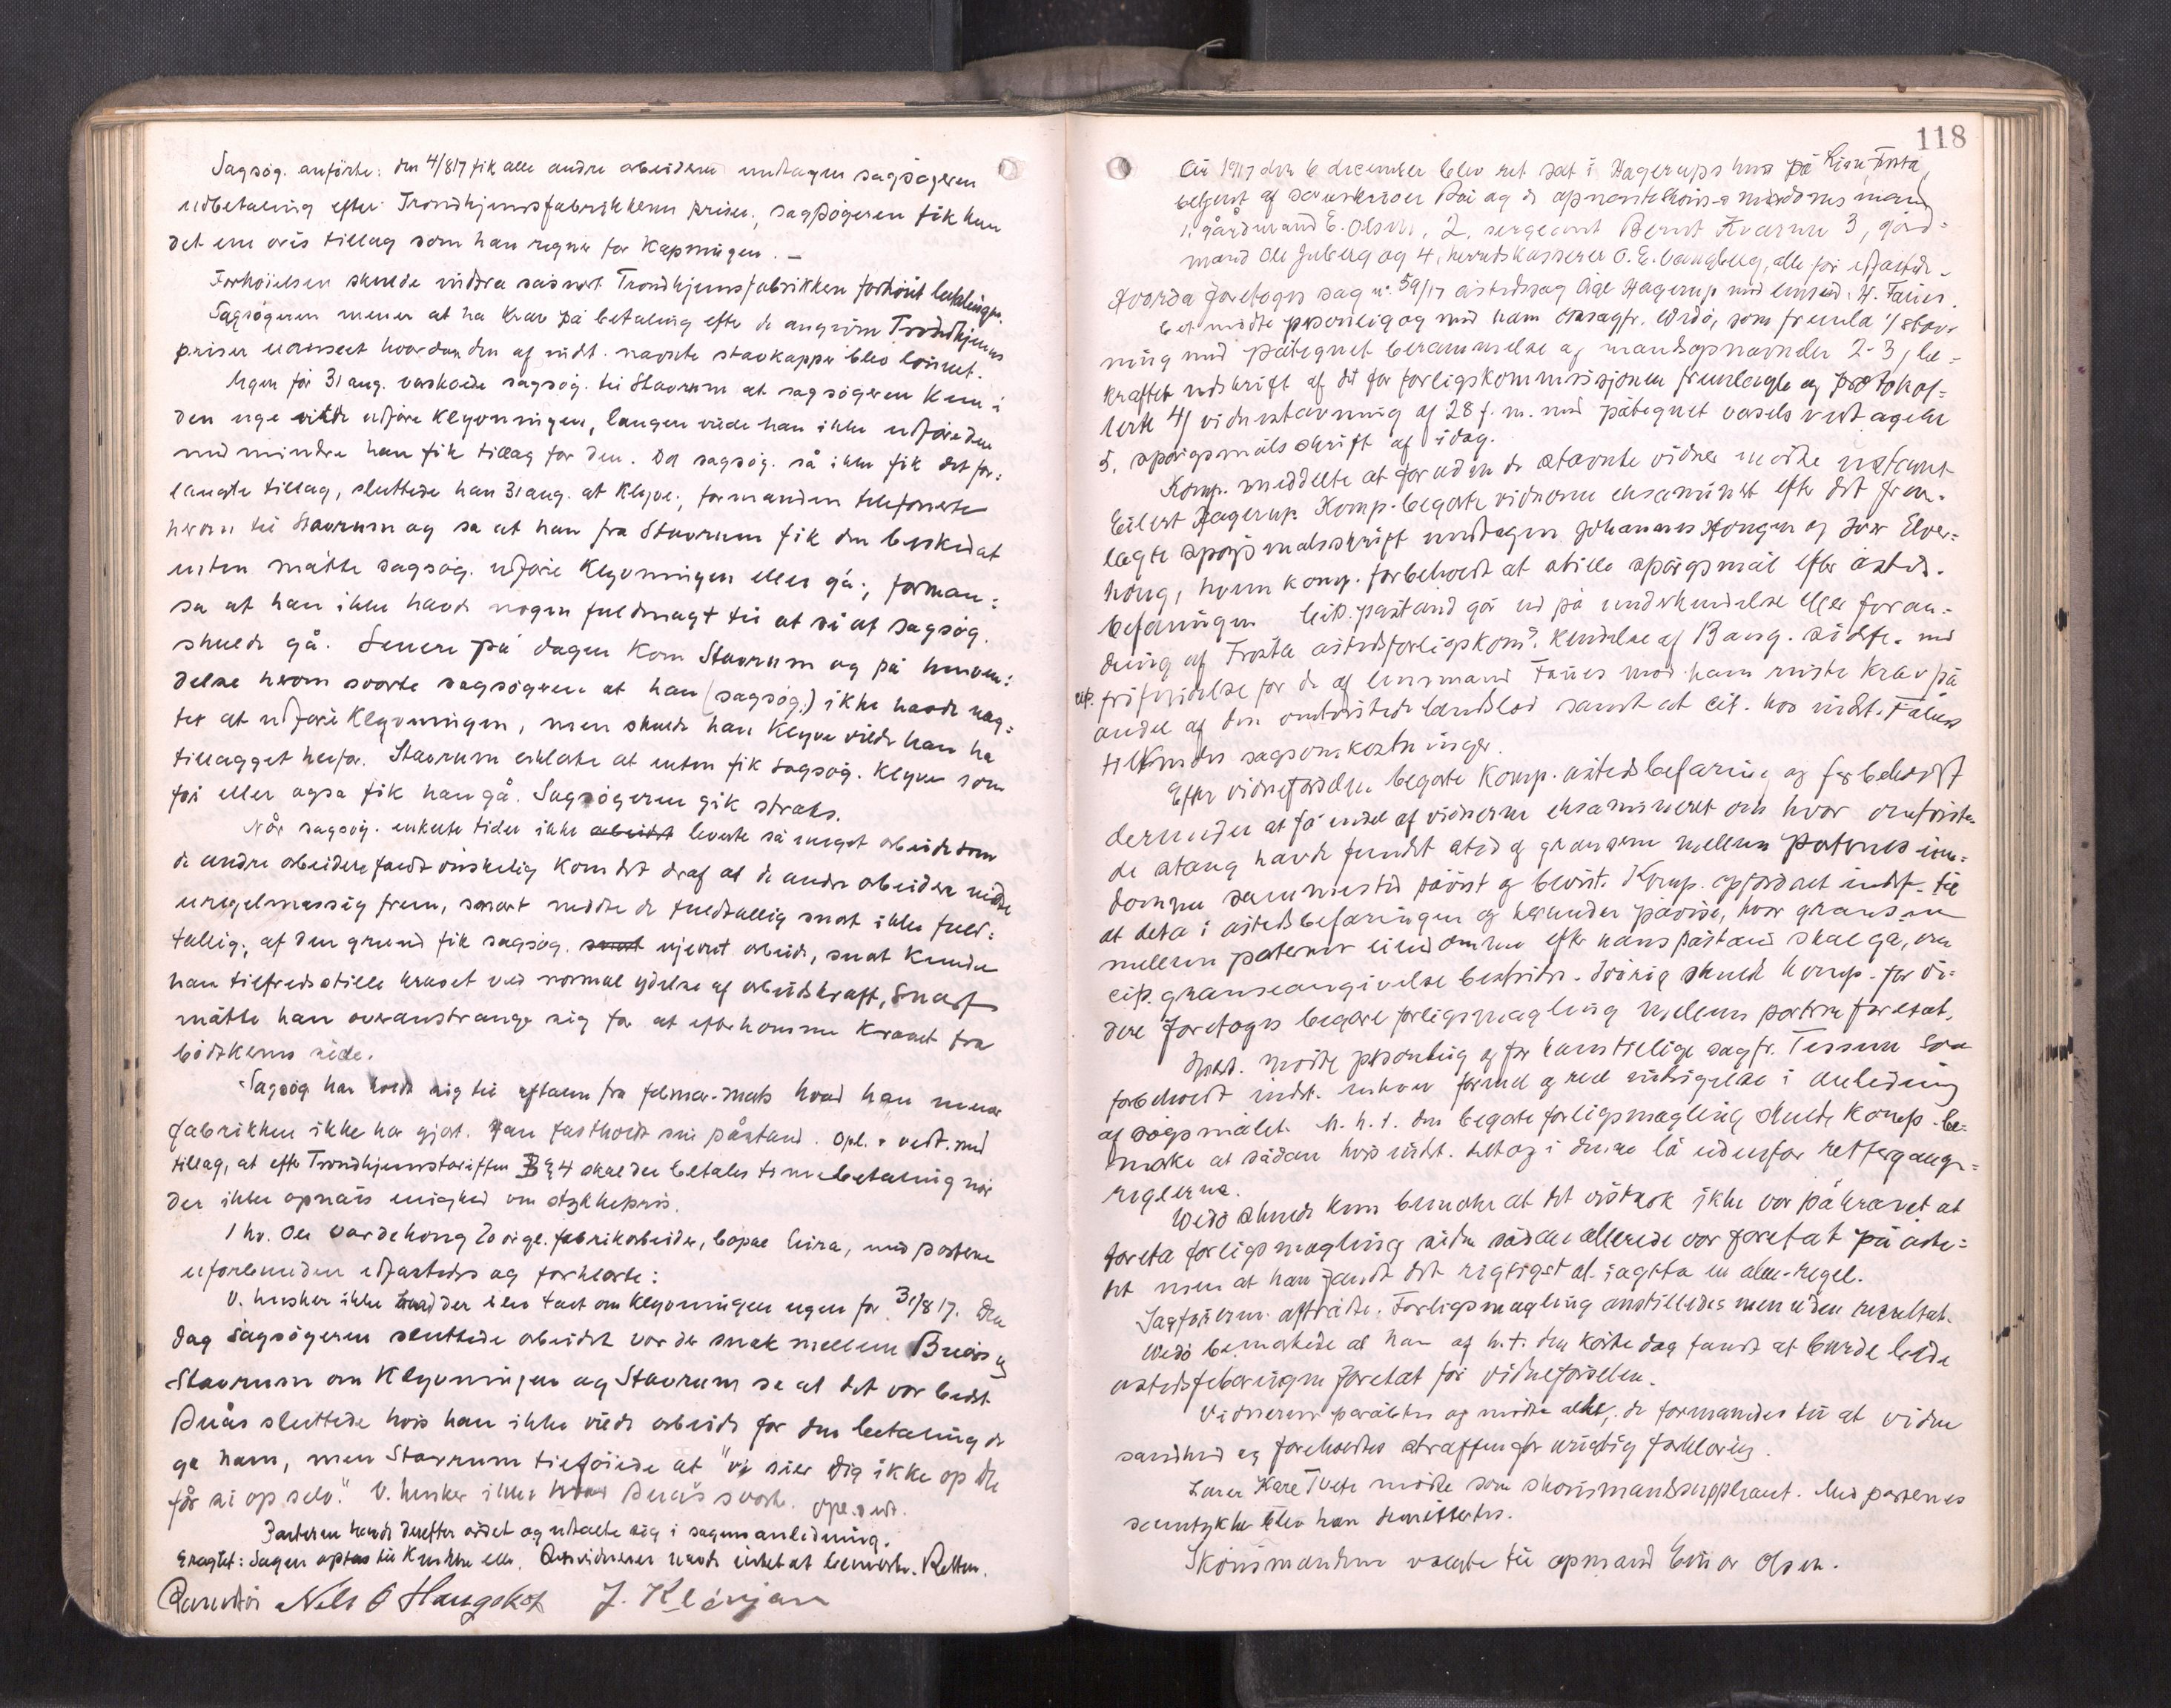 Sagsøg. anførte: den 4/817 fik alle andre arbeidere undtagen sagsøgeren
utbetaling efter Trondhjemsfabrikkens priser, sagsøgeren fik kun
det ene øres tillæg som han regner for Kapningen. –
Forhøielsen skulde indtræ såsnart Trondhjemsfabrikken forhøiet
Sagsøgeren mener at ha krav på betaling efter de angivne Trondhjems
priser uanseet hvordan den af indst. nævnte stavkapper blev lønnet.
Ugen før 31 aug. varskoede sagsøg. til Stavrum at sagsøgeren kun i
den uge vilde utføre Kløvningen, længer vilde han ikke utføre den
med mindre han fik tillæg for den. Da sagsøg. så ikke fik det for-
langte tillæg, sluttede han 31 aug. at Kløve; formanden telefonerte
herom til Stavrum og sa at han fra Stavrum fik den beskedat
enten måtte sagsøg. utføre Kløvningen eller gå; forman-
sa at han ikke havde nogen fuldmagt til at si at sagsøg.
skulde gå. Senere på dagen kom Stavrum og på henven-
delse herom svarte sagsøgeren at han (sagsøg.) ikke havde næg-
tet at utføre Kløvningen, men skulde han Kløve vilde han ha
tillægget herfor. Stavrum erklærte at enten fik sagsøg. Kløve som
før eller også fik han gå. Sagsøgeren gik straks.
Når sagsøg. enkelte tider ikke arbeidet leverte så meget arbeide som
de andre arbeidere fandt ønskelig kom det deraf at de andre arbeidere mødte
uregelmæssig frem, snart mødte de fuldtallig snart ikke fuld-
tallig; af den grund fik sagsøg. snart ujevnt arbeide, snart kunde
han tilfredsstille kravet ved normal ydelse af arbeidskraft, snart
måtte han overanstrænge sig for at efterkomme Kravet fra
bødkernes side.
Sagsøg har holdt sig til aftalen fra februar-mars hvad han mener
fabrikken ikke har gjort. Han fastholdt sin påstand. Opl. & vedt. med
tillæg, at efter Trondhjemstariffen § 4 skal der betales timebetaling når
der ikke opnåes enighed om stykkepris.
1 hv. Ole Vardehaug 20 årgl. fabrikarbeider, bopæl Leira, med parterne
uforbunden edfæstedes og forklarte:
V. husker ikke hvad der blev talt om Kløvningen ugen før 31/8 17. Den
dag sagsøgeren sluttede arbeidet var der snak mellem Buås og
Stavrum om Kløvningen og Stavrum sa at det var bedst
Buås sluttede hvis han ikke vilde arbeide for den betaling de
ga ham, men Stavrum tilføiede at "vi sier dig ikke op du
får si op selv." V. husker ikke hvad Buås svarte. Opl. vedt.
Parterne havde derefter ordet og uttalte sig i sagens anledning.
Eragtet: Sagen optas til Kendelse eller. Retsvidnerne havde intet at bemerke. Retten.
Nils O Haugskot J. Klevjan
118
År 1917 den 6 december blev ret sat i Hagerups hus på Frosta
betjent af sorenskriver og de opnævnte skjøns- mænd
1, gårdmand E. Olsen, 2, sergeant Bernt Kvarme 3, gård-
mand Ole Juberg og 4, herredskasserer O. E. Vangberg, alle før edfæstede.
Hvorda foretoges sag nr. 59/17 åstedssag Åge Hagerup mod lensmd. H. Faües.
Cit. mødte personlig og med ham orsagfr. Wedø, som fremla 1/ stæv-
ning med påtegnet berammelse og mandsopnævnelse 2-3, be-
kræftet utskrift af det for forligskommissionen fremlagte og protokol-
lerte 4/ vidnestævning af 28 f. m. med påtegnet varsels vedtagelse
5, spørgsmålsskrift af idag.
Komp. meddelte at foruden de stævnte vidner mødte ustævnt
Eilert Hagerup. Komp. begærte vidnerne eksaminert efter det frem-
lagte spørgsmålsskrift undtagen Johannes Haugen og Ivar Elver-
høug, hvem komp. forbeholdt at stille spørgsmål efter åsteds-
befaringen. Citp. påstand går ud på underkendelse eller foran-
dring af Frosta åstedsforligskom.s Kendelse af 13 aug. sidstl. med
citp. frifindelse for de af lensmand Faües mod ham reiste krav på
andel af den omtvistede landslod samt at cit. hos indst. Faües
tilkendes sagsomkostninger.
Efter vidneførselen begærte Komp. åstedsbefaring og forbeholdt
derunder at få endel af vidnerne eksamineret om hvor omtviste-
de stang havde fundet sted og grænserne mellem parternes eien-
domme sammesteds påvist og bevist. Komp. opfordret indst. til
at delta i åstedsbefaringen og herunder påvise, hvor grænsen
mellem parternes eiendomme efter hans påstand skal gå, om
citp. grænseangivelse bestrides. Iøvrig skulde komp. før vi-
dere foretoges begære forligsmægling mellem parterne foretat.
Indst. mødte personlig og for ham trælige sagfr. Tessem som
forbeholdt indst. enhver formel og reel indsigelse i anledning
af søgsmålet. M. h. t. den begærte forligsmægling skulde komp. be-
mærke at sådan hvis indst. deltog i denne lå udenfor rettergangs-
reglerne.
Wedø skulde kun bemærke at det vistnok ikke var påkrævet at
foreta forligsmægling siden sådan allerede var foretat på åste-
det men at han fandt det rigtigst at iagtta en alm. regel.
Sagførerne aftrådte. Forligsmægling anstilledes men uden resultat.
Wedø bemærkede at han af h. t. den korte dag fandt at burde bede
åstedsbefaringen foretat før vidneførselen.
Vidnerne påråbtes og mødte alle, de formandes til at vidne
sandhed og foreholdtes straffen for urigtig forklaring.
Lærer Kåre Tvete mødte som skjønsmandssuppleant. Med parternes
samtykke blev han demittertes.
Skjønsmændene valgte til opmand Einar Olsen.